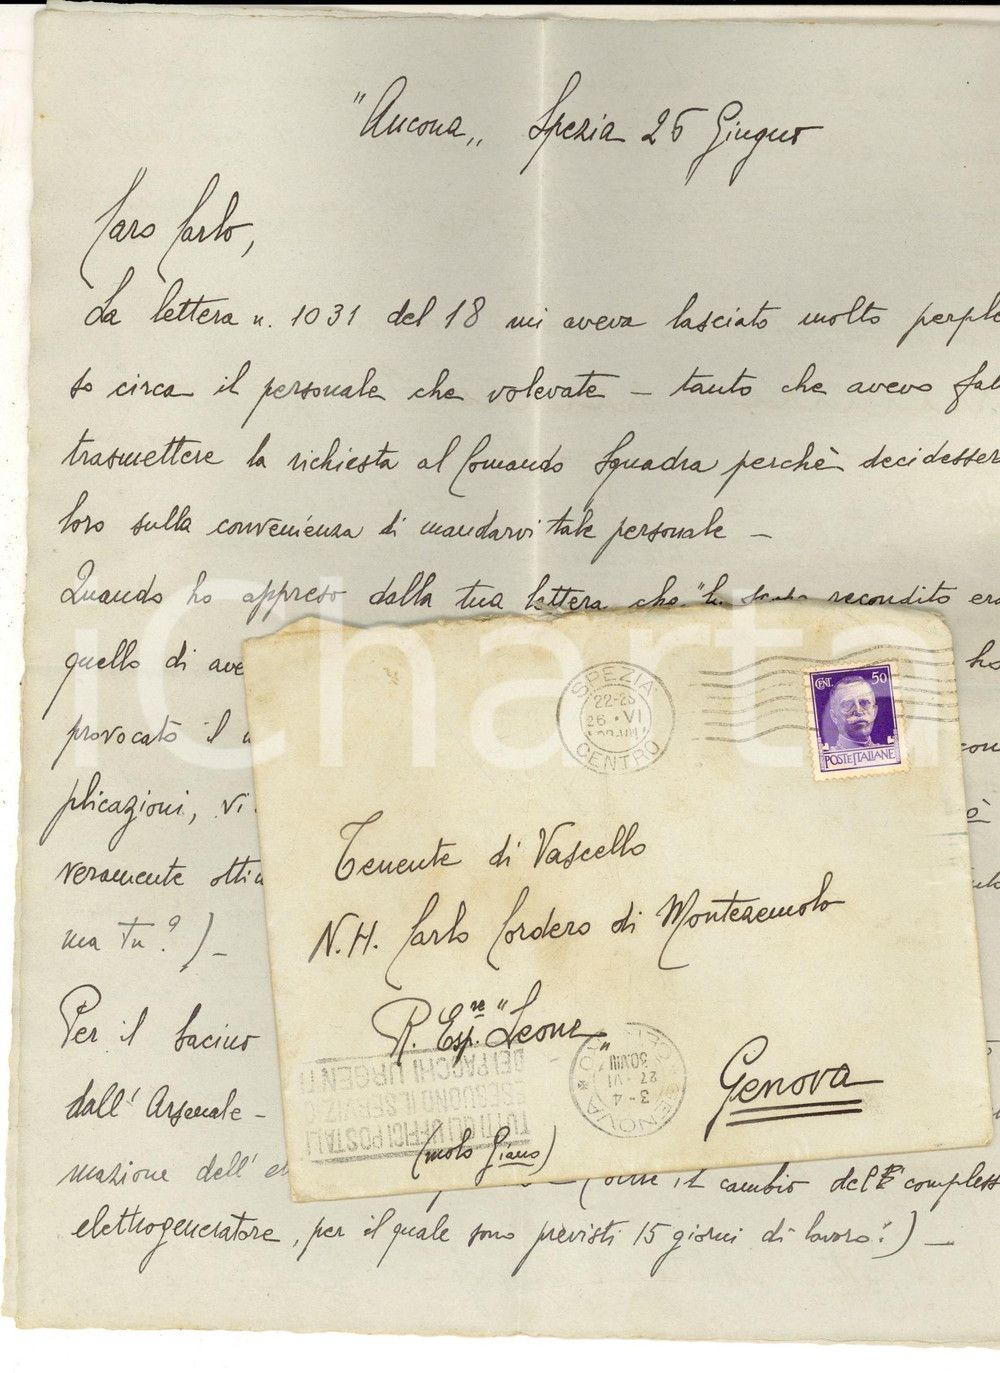 "Ancona„ Spezia 26 Giugno
Caro Carlo,
La lettera n. 1031 del 18 mi aveva lasciato molto perples
so circa il personale che volevate – tanto che avevo fat
trasmettere la richiesta al Comando Squadra perchè decidesser
loro sulla convenienza di mandarvi tale personale –
Quando ho appreso dalla tua lettera che recondito era
quello di ave ho
provocato il
plicazioni, vi
veramente ottim
ma tu?) –
Per il bacino
dall' Arsenale –
mazione dell' el il cambio del compless
elettrogeneratore, per il quale sono previsti 15 giorni di lavoro!) –
SPEZIA
22-23
26·VI
CENTRO
CENT. 50
POSTE ITALIANE
Tenente di Vascello
N.H. Carlo Cordero di Montezemolo
R. Esp.re "Leone„
Genova
(molo Giano)
TUTTI GLI UFFICI POSTALI
ESEGUONO IL SERVIZIO
DEI PACCHI URGENTI
GENOVA
3-4
27·VI
iCharta